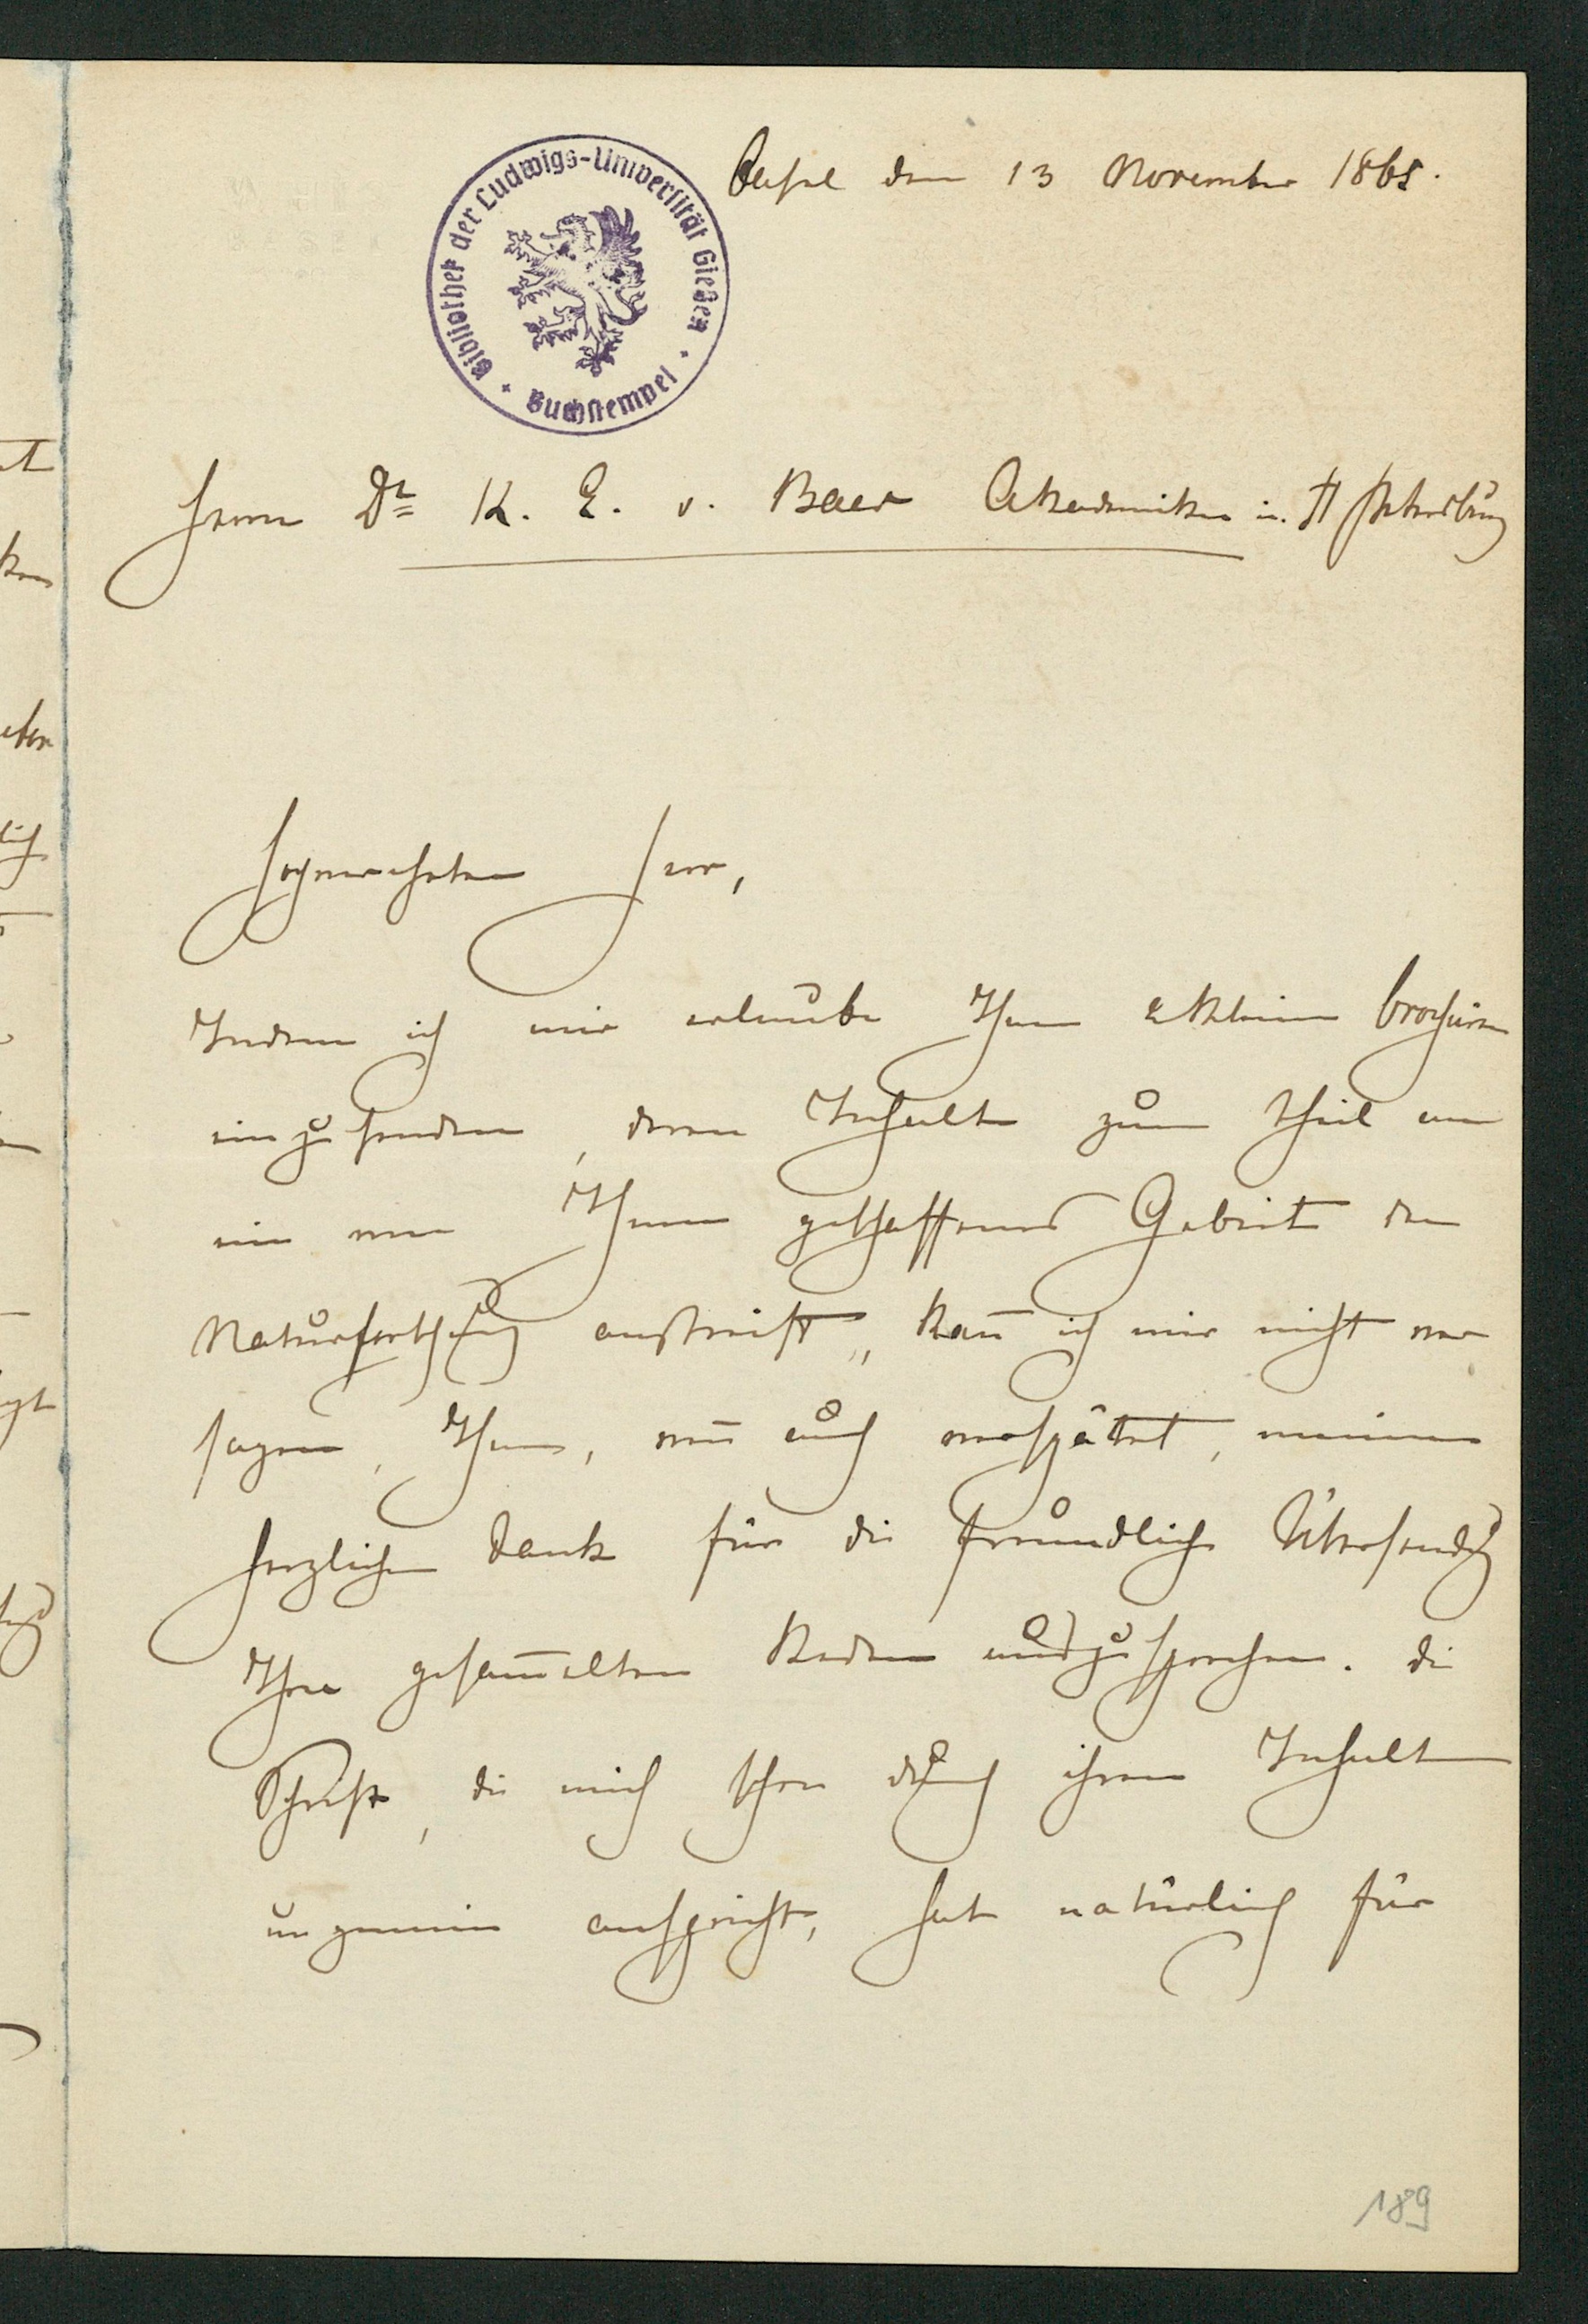 Basel den 13 November 1865.
Bibliothek der Ludwigs-Universität Gießen
Buchstempel
Herrn Dr K. E. v. Baer Akademiker in St Petersburg
Hochverehrter Herr,
Indem ich mir erlaube Ihnen 2 kleine brochüren
einzusenden, deren Inhalt zum theil an
ein von Ihnen geschaffenes Gebiet der
Naturforschung anstreift, kan̄ ich mir nicht ver
sagen, Ihnen, wen̄ auch verspätet, meinen
herzlichen Dank für die freundliche Übersendung
Ihrer gesam̄elten Reden auszusprechen. Die
Schrift, die mich schon durch ihren Inhalt
ungemein anspricht, hat natürlich für
189